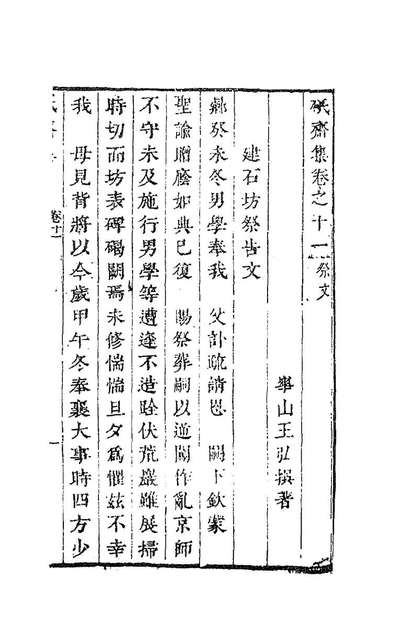 砥齋集卷之十一 祭文
華山王弘撰著
建石坊祭告文
癸未冬男學奉我 父訃疏請恩 闕下欽蒙
聖諭贈廕如典已復 賜祭葬嗣以逆闖作亂京師
不守未及施行男學等遭逢不造跧伏荒巖雖展掃
時切而坊表碑碣闕焉未修惴惴旦夕為懼茲不幸
我 母見背將以今歲甲午冬奉襄大事時四方少
卷十一
一